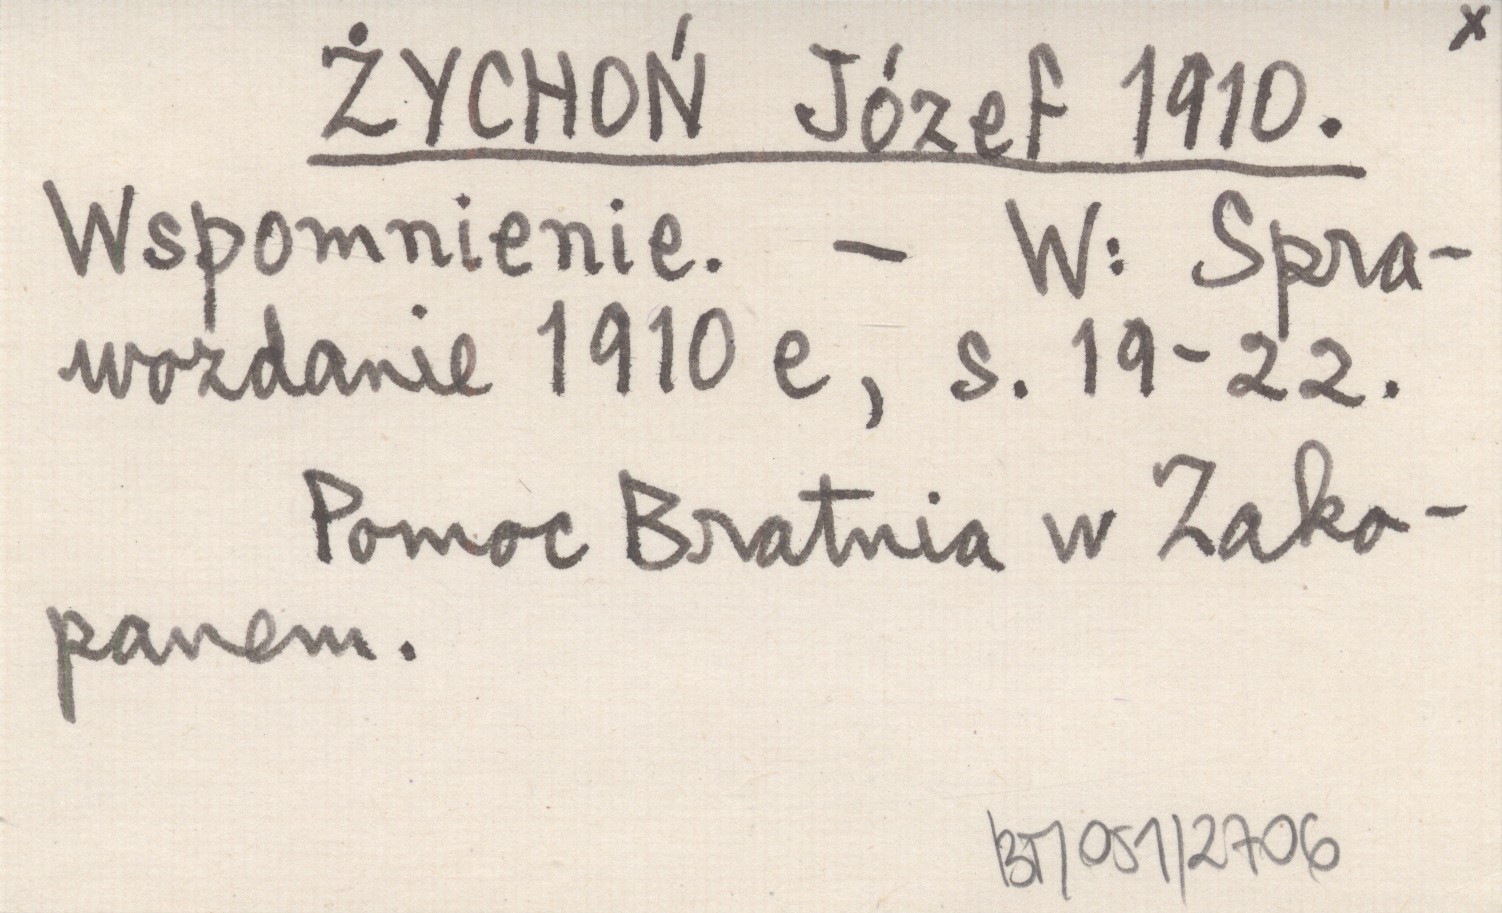 x
ŻYCHOŃ Józef 1910.
Wspomnienie. – W: Spra-
wozdanie 1910 e, s. 19-22.
Pomoc Bratnia w Zako-
panem.
BT/051/2706